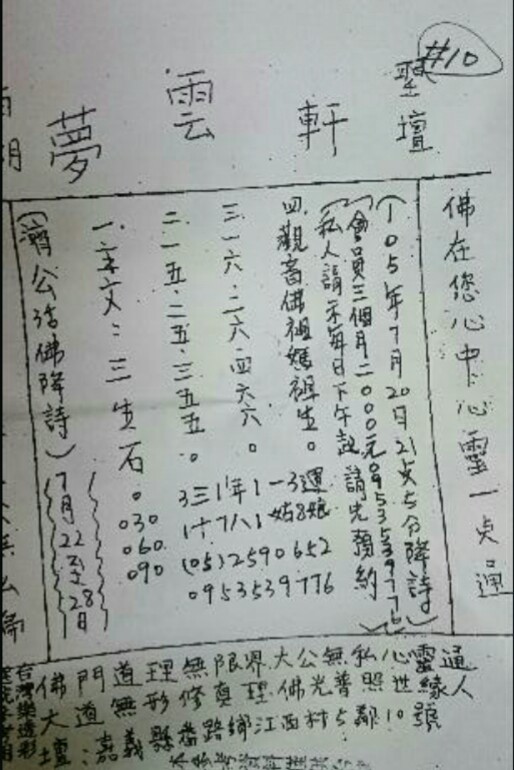 #10
夢雲軒聖壇
佛在您心中心靈一点通
(105年7月20日21点5分降詩)
(會員三個月2000元0953539776)
(私人請示每日下午說請先預約)
四.觀音佛祖媽祖生。
三.一六.二六.四六六。
二.一五.二五.三五五。
一.字文:三生石。
030
060
090
(濟公活佛降詩)
7月22至28日
(05)2590652
0953539776
佛門道理無限界大公無私心靈通
大道無形修真理佛光普照世緣人
壇:嘉義縣番路鄉江西村5鄰10號